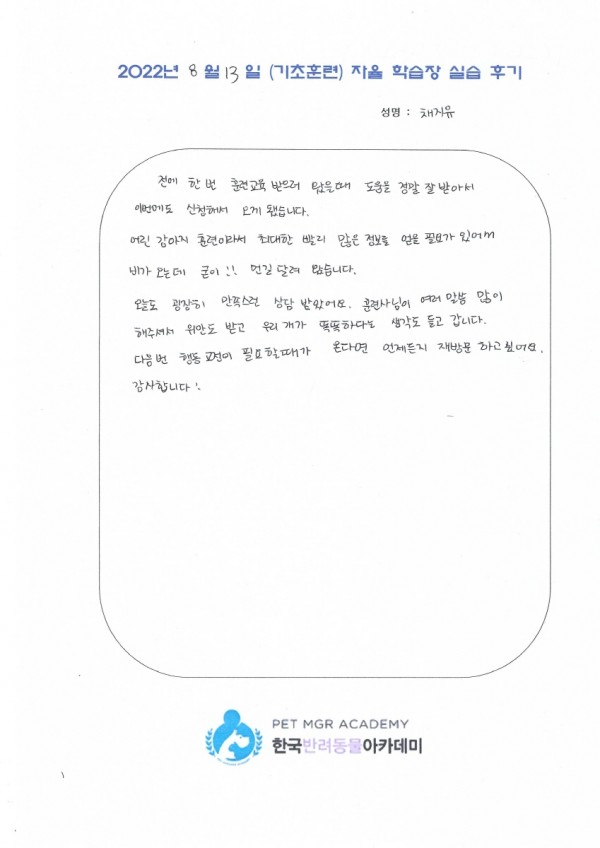 2022년 8월 13일 (기초훈련) 자율 학습장 실습 후기
성명 : 채지유
전에 한 번 훈련교육 받으러 왔을때 도움을 정말 잘 받아서
이번에도 신청해서 오게 됐습니다.
어린 강아지 훈련이라서 최대한 빨리 많은 정보를 얻을 필요가 있어서
비가 오는데 굳이!! 먼길 달려 왔습니다.
오늘도 굉장히 만족스런 상담 받았어요. 훈련사님이 여러 말씀 많이
해주셔서 위안도 받고 우리 개가 똑똑하다는 생각도 들고 갑니다.
다음번 행동교정이 필요할때가 온다면 언제든지 재방문 하고싶어요.
감사합니다!
PET MGR ACADEMY
한국반려동물아카데미